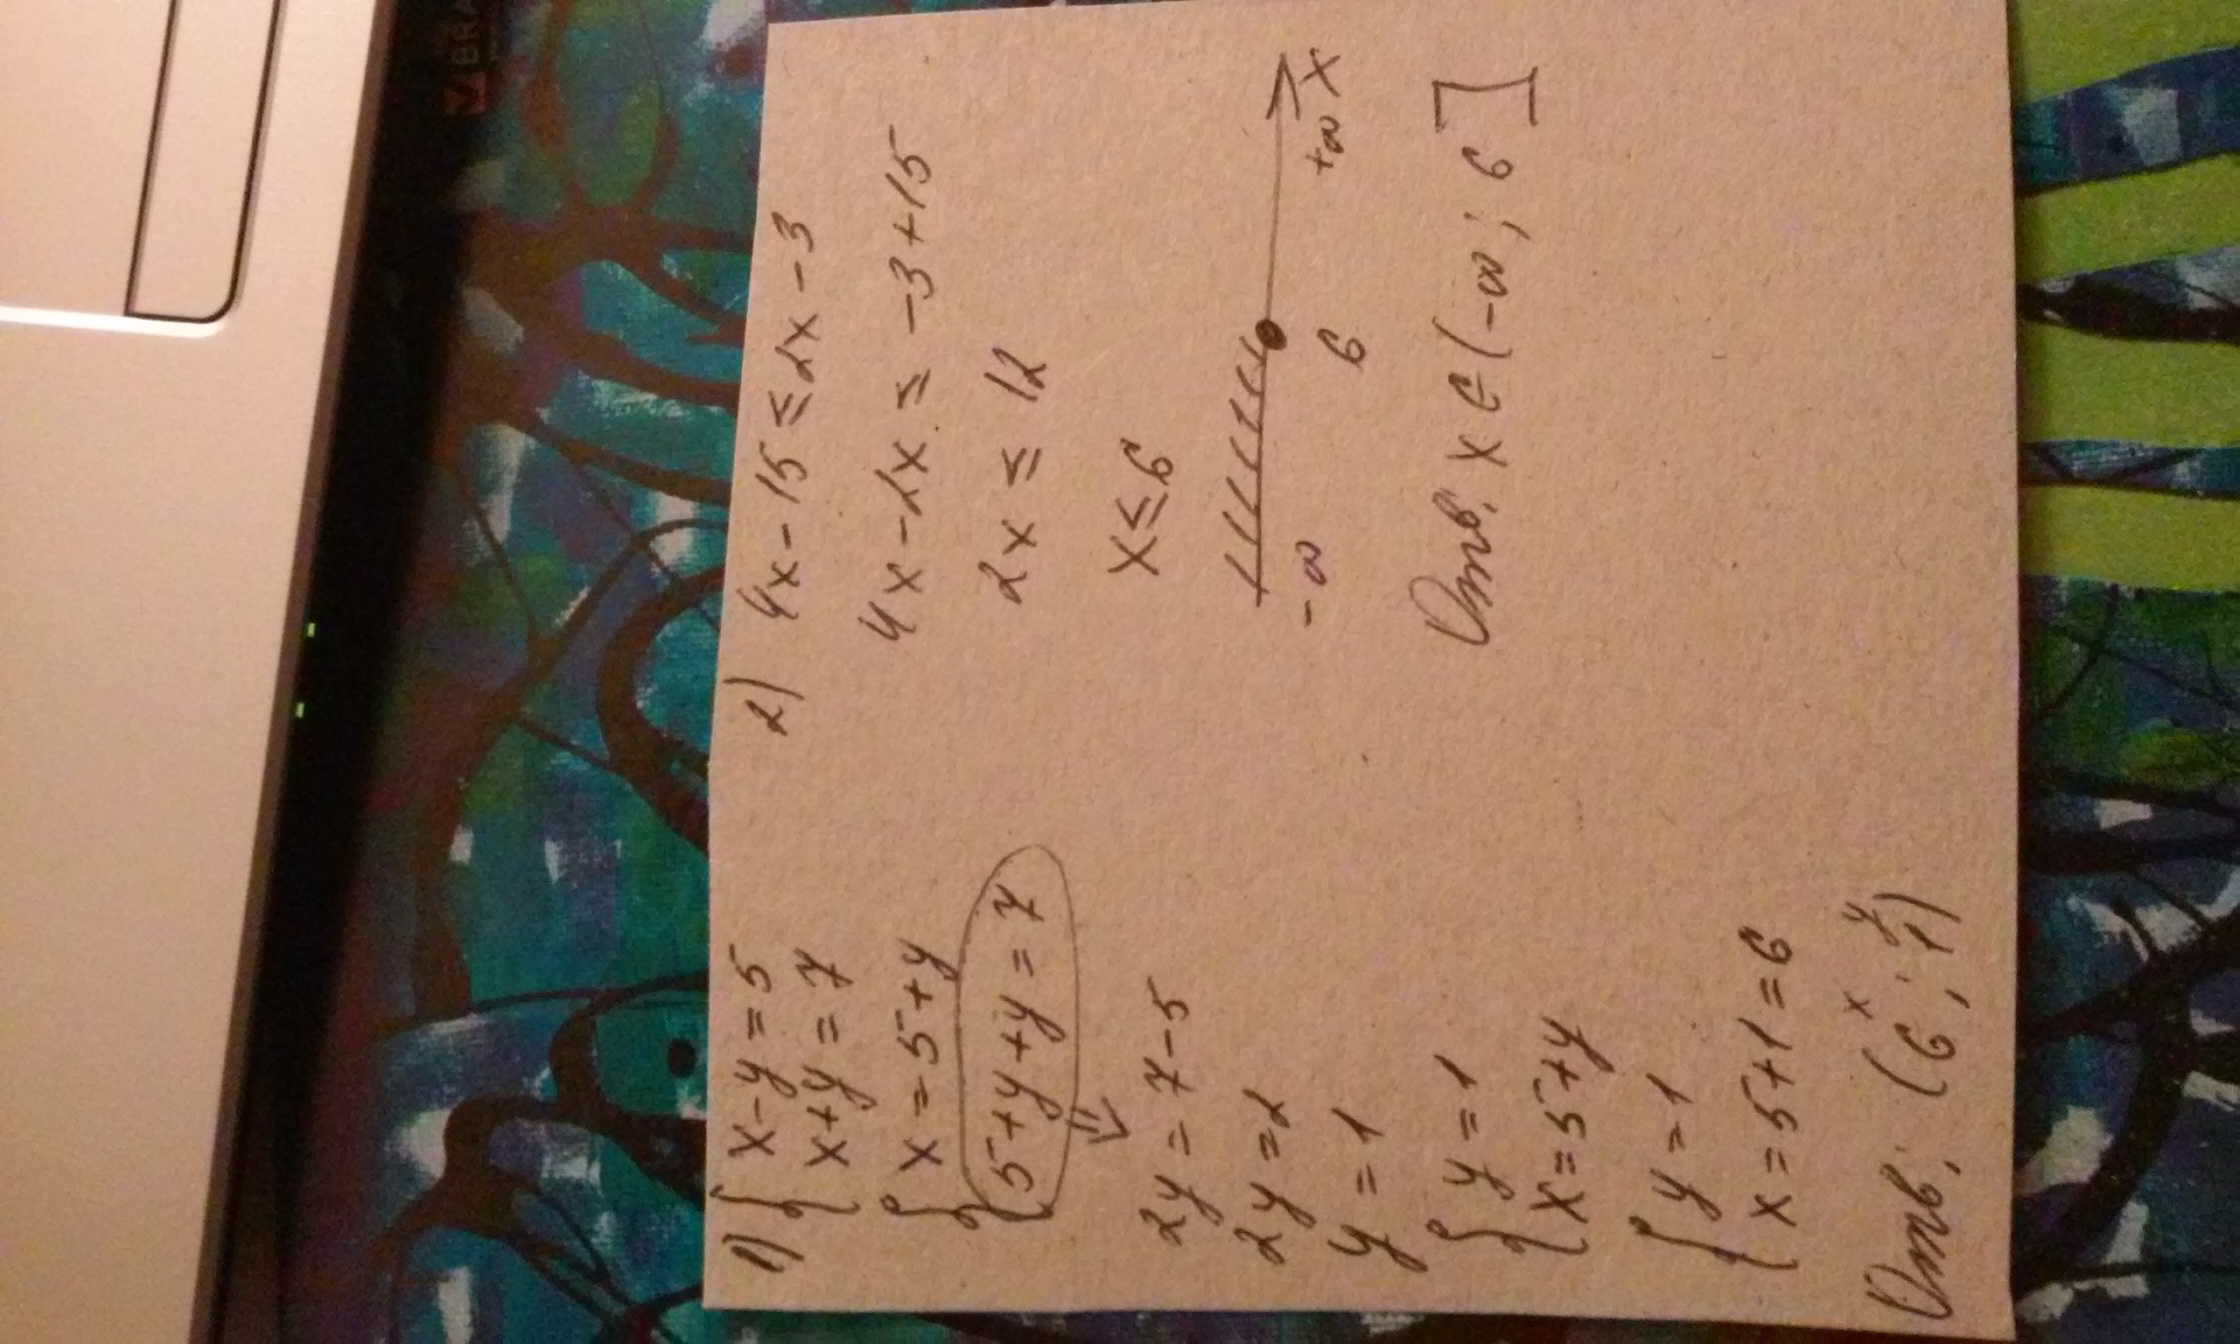 1) { x-y=5
x+y=7
{ x=5+y
5+y+y=7
⇓
2y=7-5
2y=2
y=1
{ y=1
x=5+y
{ y=1
x=5+1=6
x y
Отв: (6; 1)
2) 4x-15≤2x-3
4x-2x≤-3+15
2x≤12
x≤6
-∞ 6 +∞ x
Отв. x∈(-∞; 6]